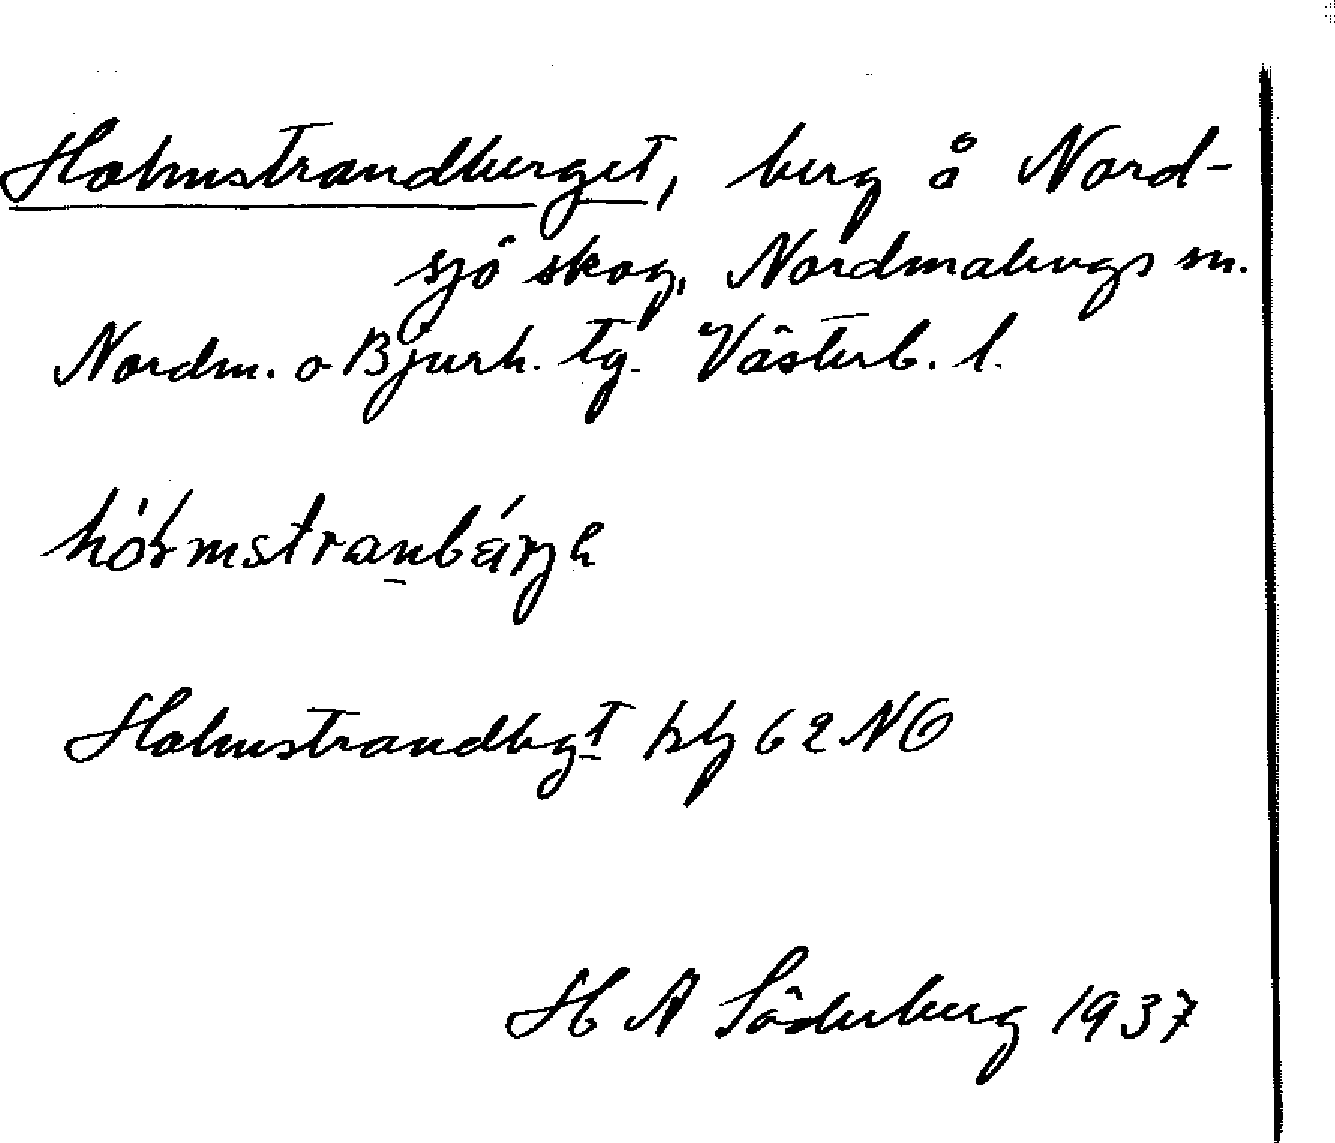 Holmstrandberget, berg å Nord-
sjö skog, Nordmalings sn.
Nordm. o Bjurh. tg. Västerb. l.
Holmstrandbgt kbl 62 NO
H A Söderberg 1937